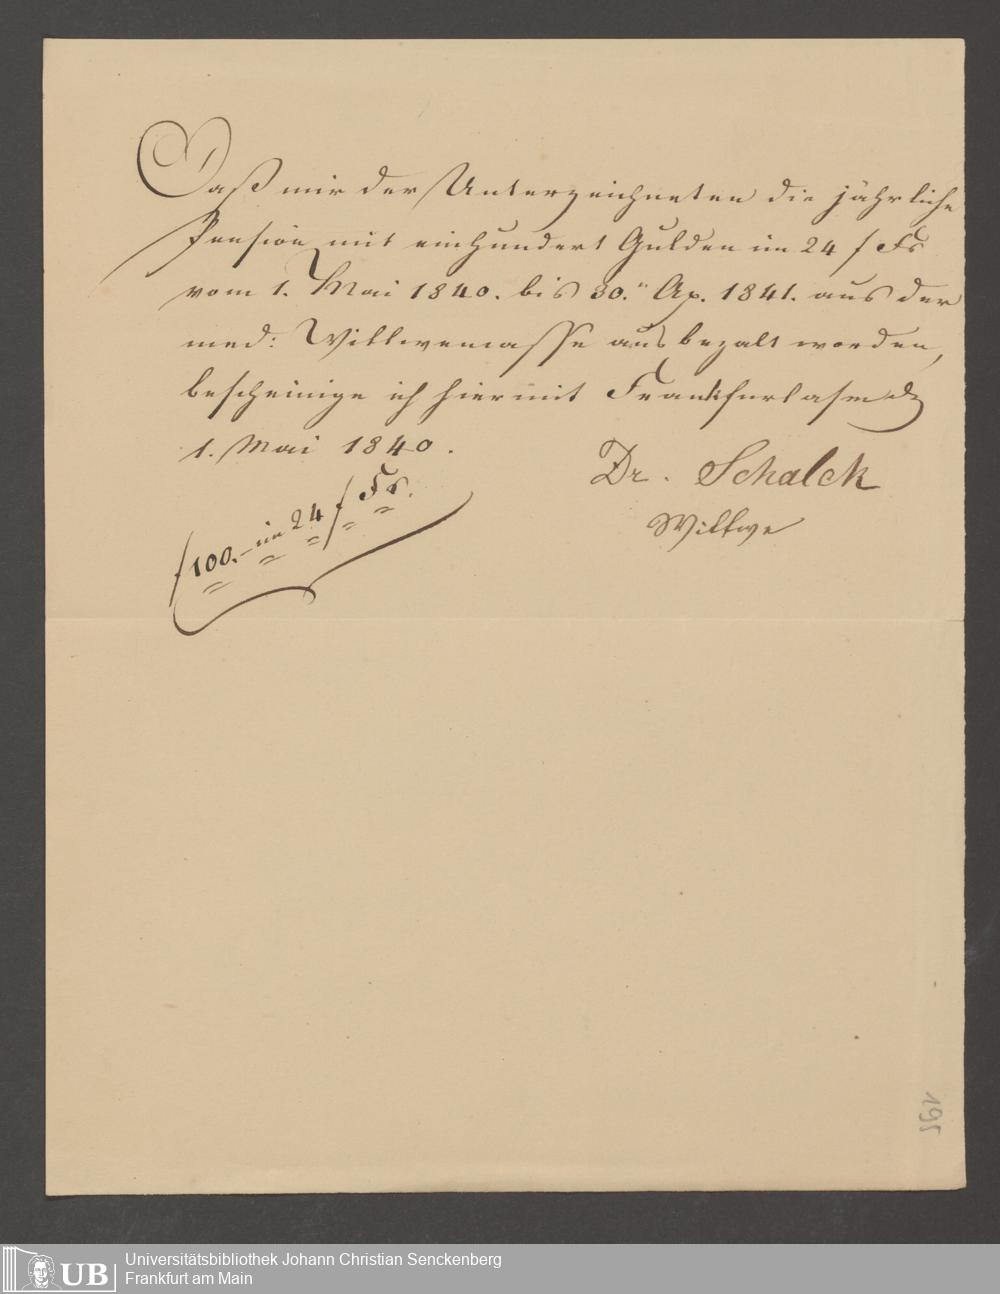 Daß mir der Unterzeichneten die jährliche
Pension mit einhundert Gulden im 24 f Fs
vom 1. Mai 1840. bis 30." Ap. 1841. aus der
med: Wittwencasse ausbezalt worden,
bescheinige ich hiermit Frankfurt a/m d
1. Mai 1840.
Dr. Schalck
Wittwe
f 100.- im 24 f Fs.
195
UB Universitätsbibliothek Johann Christian Senckenberg
Frankfurt am Main